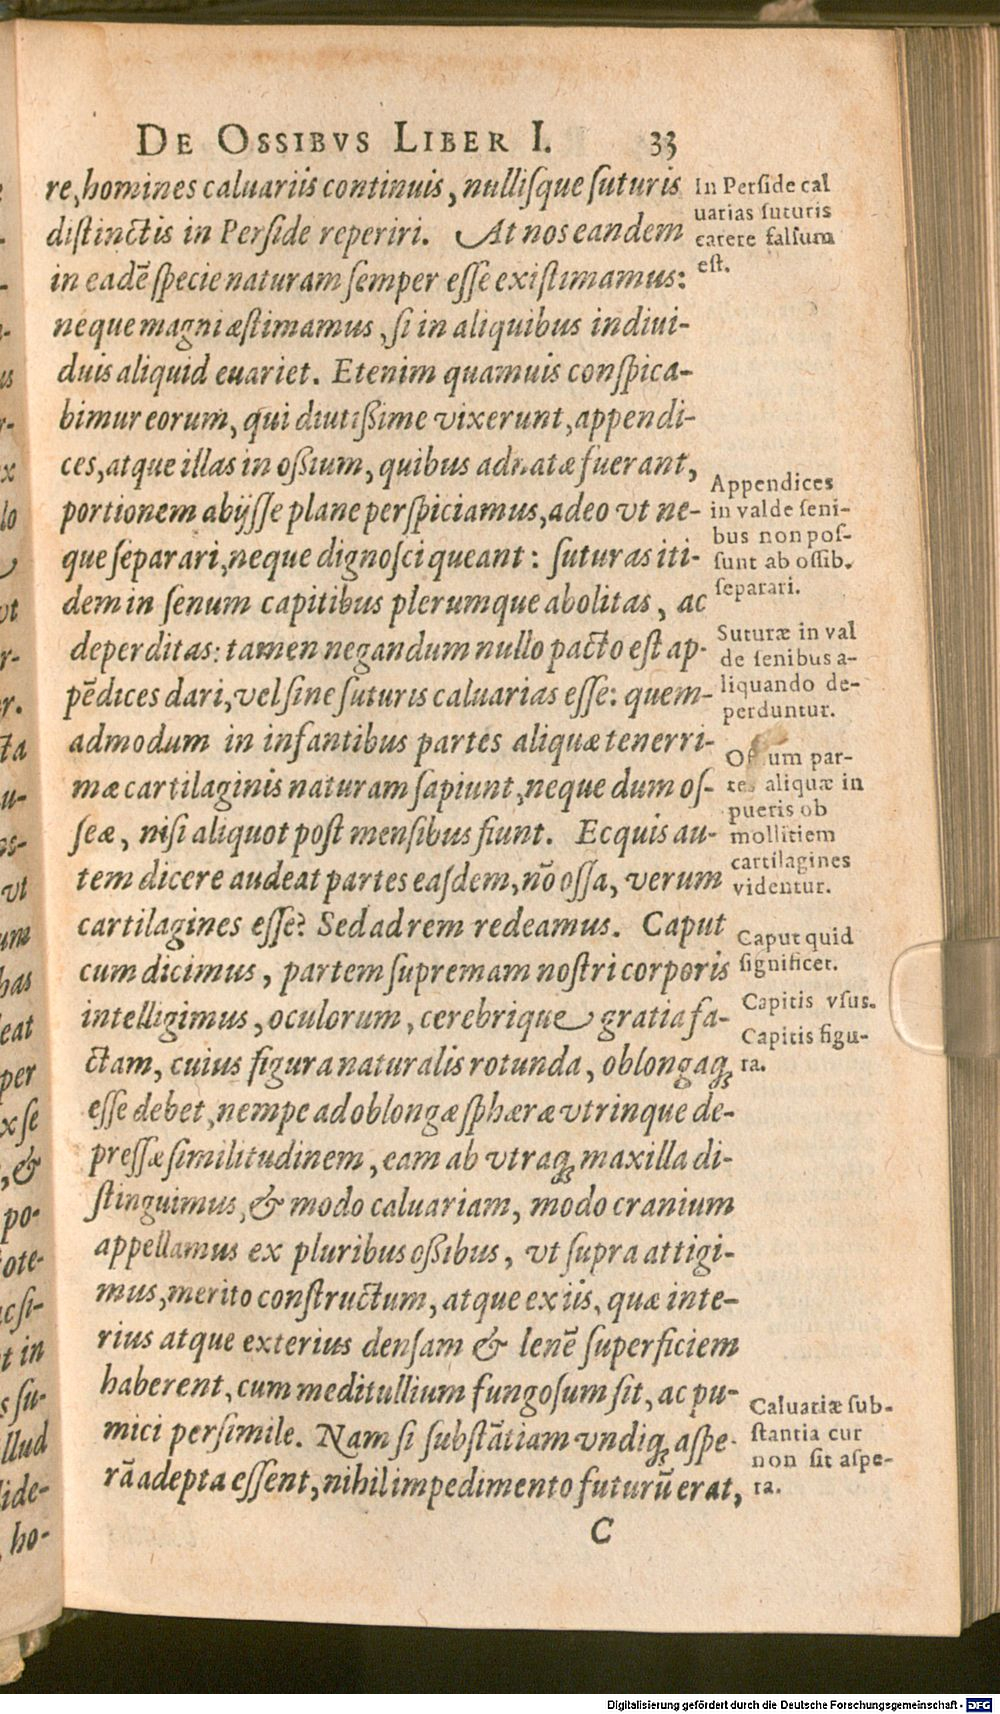 DE OSSIBVS LIBER I. 33
re, homines caluariis continuis, nullisque suturis
distinctis in Perside reperiri. At nos eandem
in eadē specie naturam semper esse existimamus:
neque magni æstimamus, si in aliquibus indiui-
duis aliquid euariet. Etenim quamuis conspica-
bimur eorum, qui diutißime vixerunt, appendi-
ces, atque illas in oßium, quibus adnatæ fuerant,
portionem abijsse plane perspiciamus, adeo vt ne-
que separari, neque dignosci queant: suturas iti-
dem in senum capitibus plerumque abolitas, ac
deperditas: tamen negandum nullo pacto est ap-
pēdices dari, vel sine suturis caluarias esse: quem-
admodum in infantibus partes aliquæ tenerri-
mæ cartilaginis naturam sapiunt, neque dum os-
seæ, nisi aliquot post mensibus fiunt. Ecquis au-
tem dicere audeat partes easdem, nō ossa, verum
cartilagines esse? Sed ad rem redeamus. Caput
cum dicimus, partem supremam nostri corporis
intelligimus, oculorum, cerebrique gratia fa-
ctam, cuius figura naturalis rotunda, oblongaq;
esse debet, nempe ad oblongæ sphæræ vtrinque de-
pressæ similitudinem, eam ab vtraq; maxilla di-
stinguimus, & modo caluariam, modo cranium
appellamus ex pluribus oßibus, vt supra attigi-
mus, merito constructum, atque ex iis, quæ inte-
rius atque exterius densam & lenē superficiem
haberent, cum meditullium fungosum sit, ac pu-
mici persimile. Nam si substātiam vndiq; aspe-
rā adepta essent, nihil impedimento futurū erat,
C
In Perside cal
uarias suturis
carere falsum
est.
Appendices
in valde seni-
bus non pos-
sunt ab ossib.
separari.
Suturæ in val
de senibus a-
liquando de-
perduntur.
Ossium par-
tes aliquæ in
pueris ob
mollitiem
cartilagines
videntur.
Caput quid
significet.
Capitis vsus.
Capitis figu-
ra.
Caluariæ sub-
stantia cur
non sit aspe-
ra.
Digitalisierung gefördert durch die Deutsche Forschungsgemeinschaft - DFG